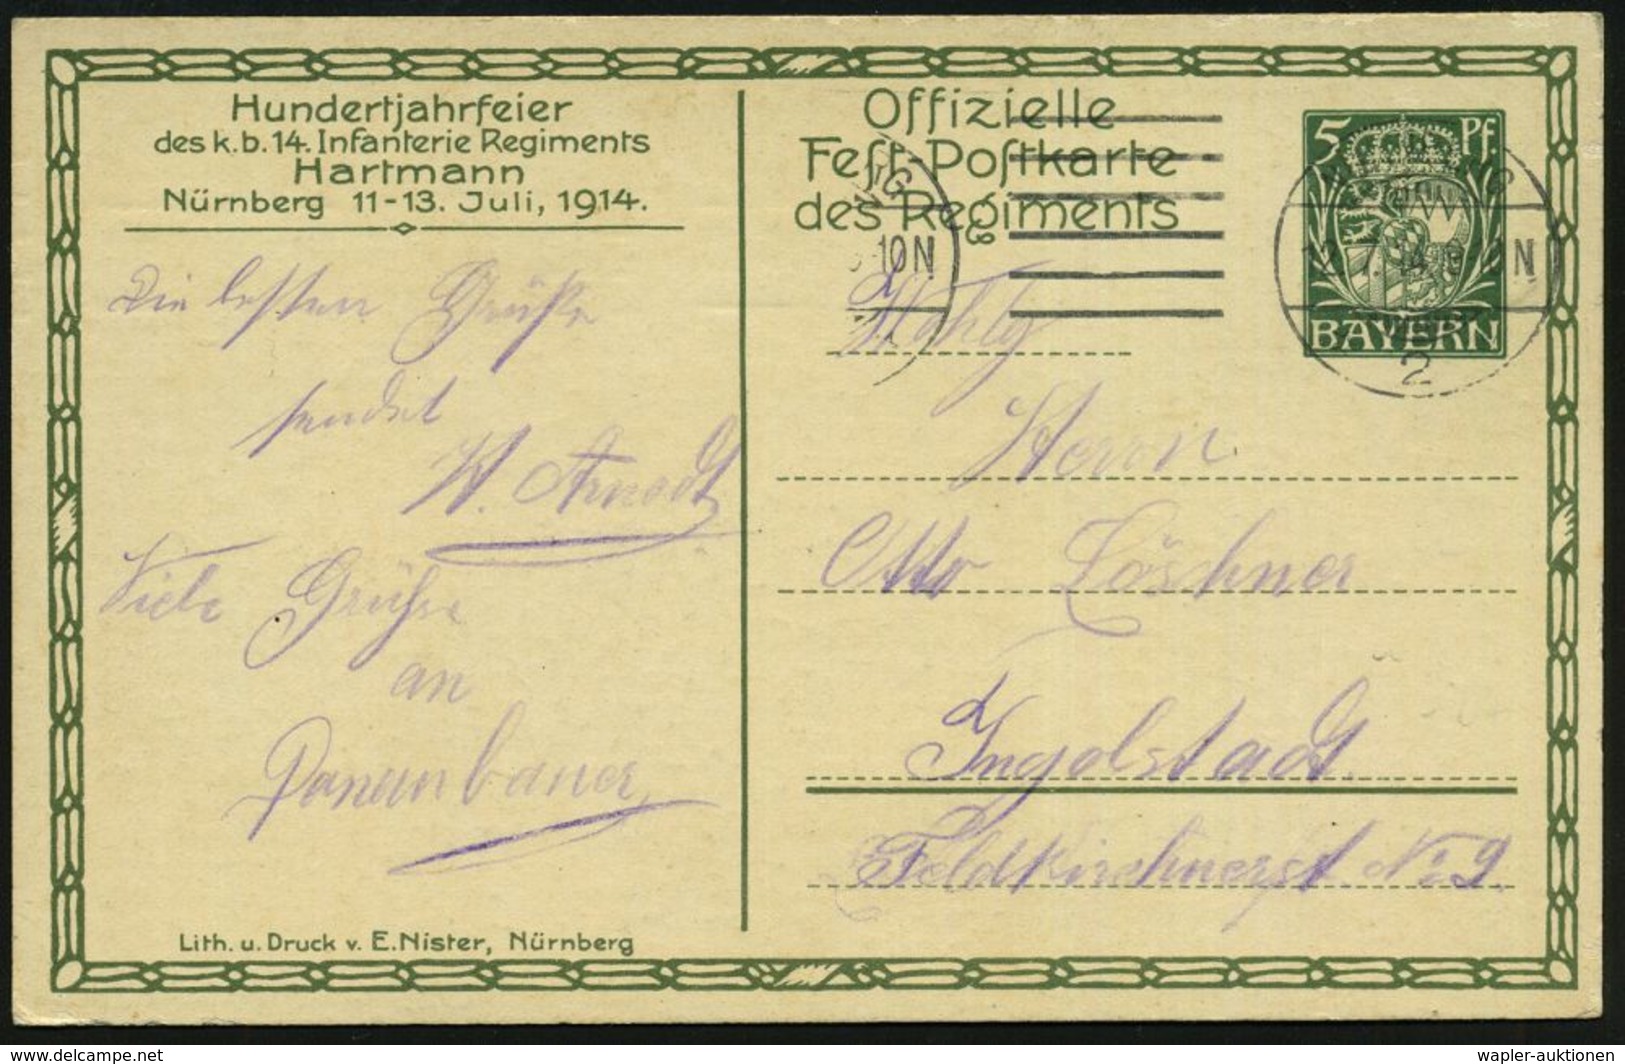 Hundertjahrfeier
des k. b. 14. Infanterie Regiments
Hartmann
Nürnberg 11-13. Juli, 1914.
Die besten Grüße
sendet
W. Arnodt
Viele Grüße
an
Lith. u. Druck v. E. Nister, Nürnberg
Offizielle
Fest-Postkarte
des Regiments
5 Pf.
BAYERN
10 N
2
Herrn
Otto Löschner
Ingolstadt.
Feldkirchnerst No 9.
wapler-auktionen
delcampe.net